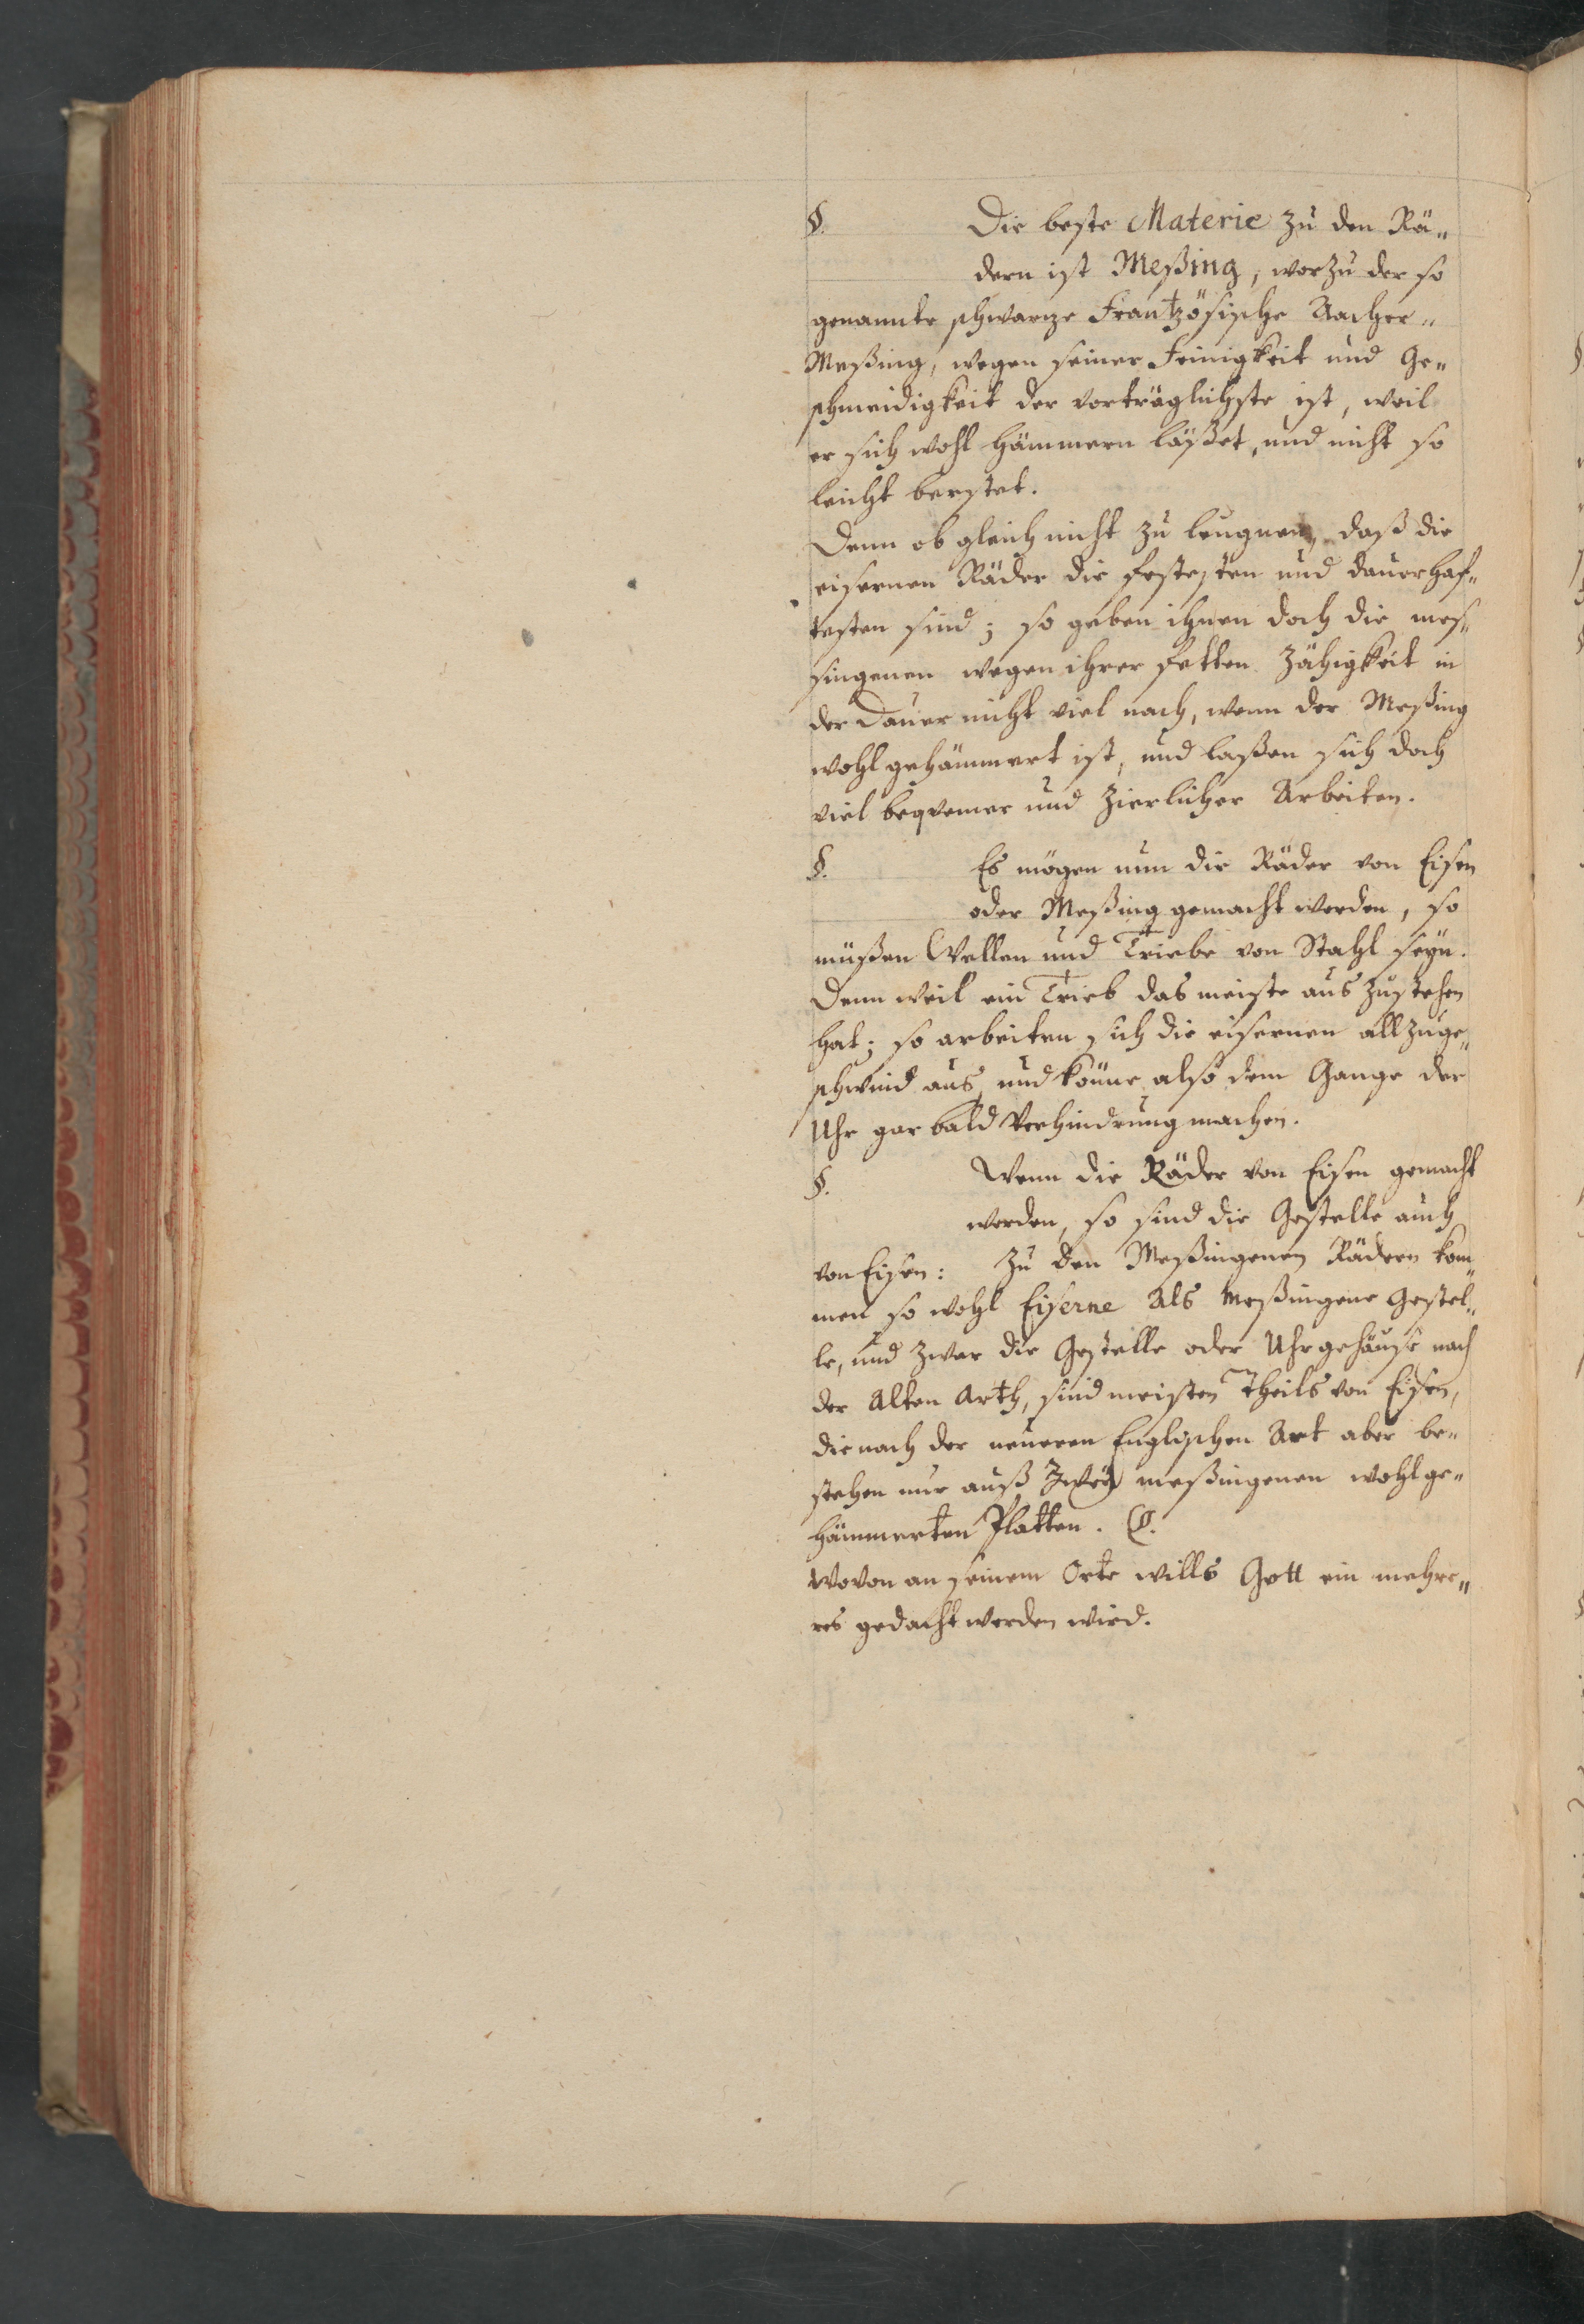 §. Die beste Materie zu den Rä„
dern ist Meßing, worzu der so
genannte schwarze Frantzösische Aacher„
Meßing, wegen seiner Feinigkeit und Ge„
schmeidigkeit der vorträglichste ist, weil
er sich wohl hämmern läßet, und nicht so
leicht berstet.
Denn ob gleich nicht zu leugnen, daß die
eisernen Räder die festesten und dauerhaf„
testen sind; so geben ihnen doch die mes„
singenen wegen ihrer fetten Zähigkeit in
der Dauer nicht viel nach, wenn der Meßing
wohl gehämmert ist, und laßen sich doch
viel beqvemer und zierlicher Arbeiten.
§. Es mögen nun die Räder von Eisen
oder Meßing gemacht werden, so
müßen Wellen und Triebe von Stahl seyn.
Denn weil ein Trieb das meiste aus zustehen
hat; so arbeiten sich die eisernen allzuge„
schwind aus, und könne also dem Gange der
Uhr gar bald Verhindrung machen.
§. Wenn die Räder von Eisen gemacht
werden, so sind die Gestelle auch
von Eisen: Zu den Meßingenen Rädern kom„
men so wohl Eiserne Als Meßingene Gestel„
le, und zwar die Gestelle oder Uhrgehäuse nach
der Alten Arth, sind meisten Theils von Eisen,
die nach der neueren Englischen Art aber be„
stehen nur auß Zwey meßingenen wohl ge„
hämmerten Platten.
Wovon an seinem Orte wills Gott ein mehre„
res gedacht werden wird.